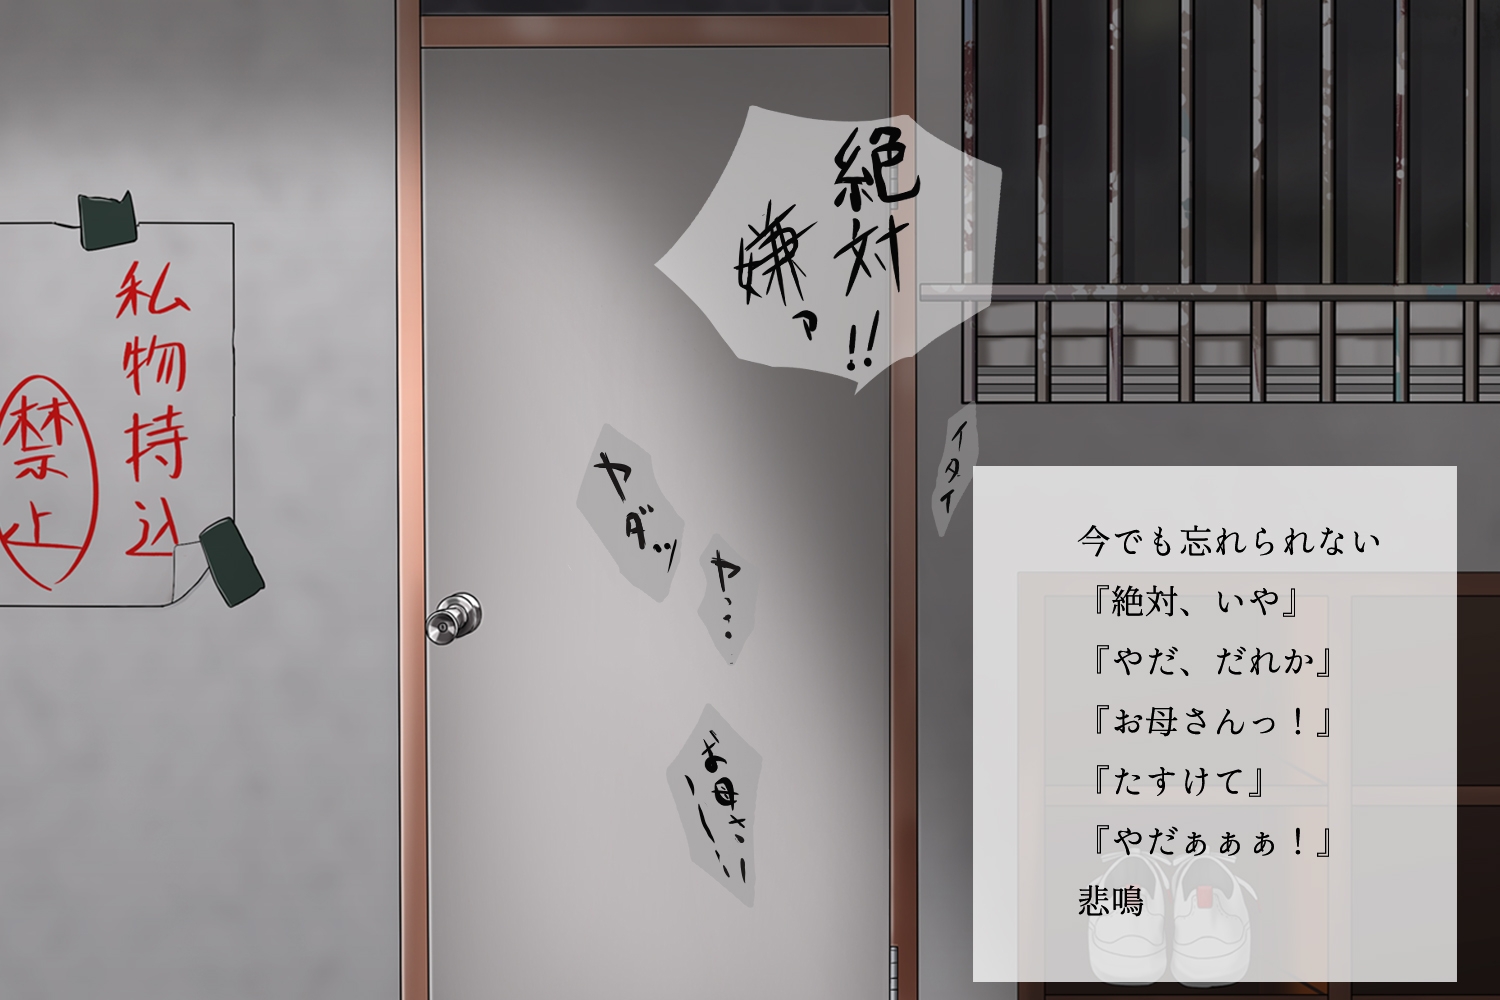 絶対
嫌ァ
!!
イタイ
ヤダッ
ヤ…
お母さ
私物持込
禁止
今でも忘れられない
『絶対、いや』
『やだ、だれか』
『お母さんっ！』
『たすけて』
『やだぁぁぁ！』
悲鳴